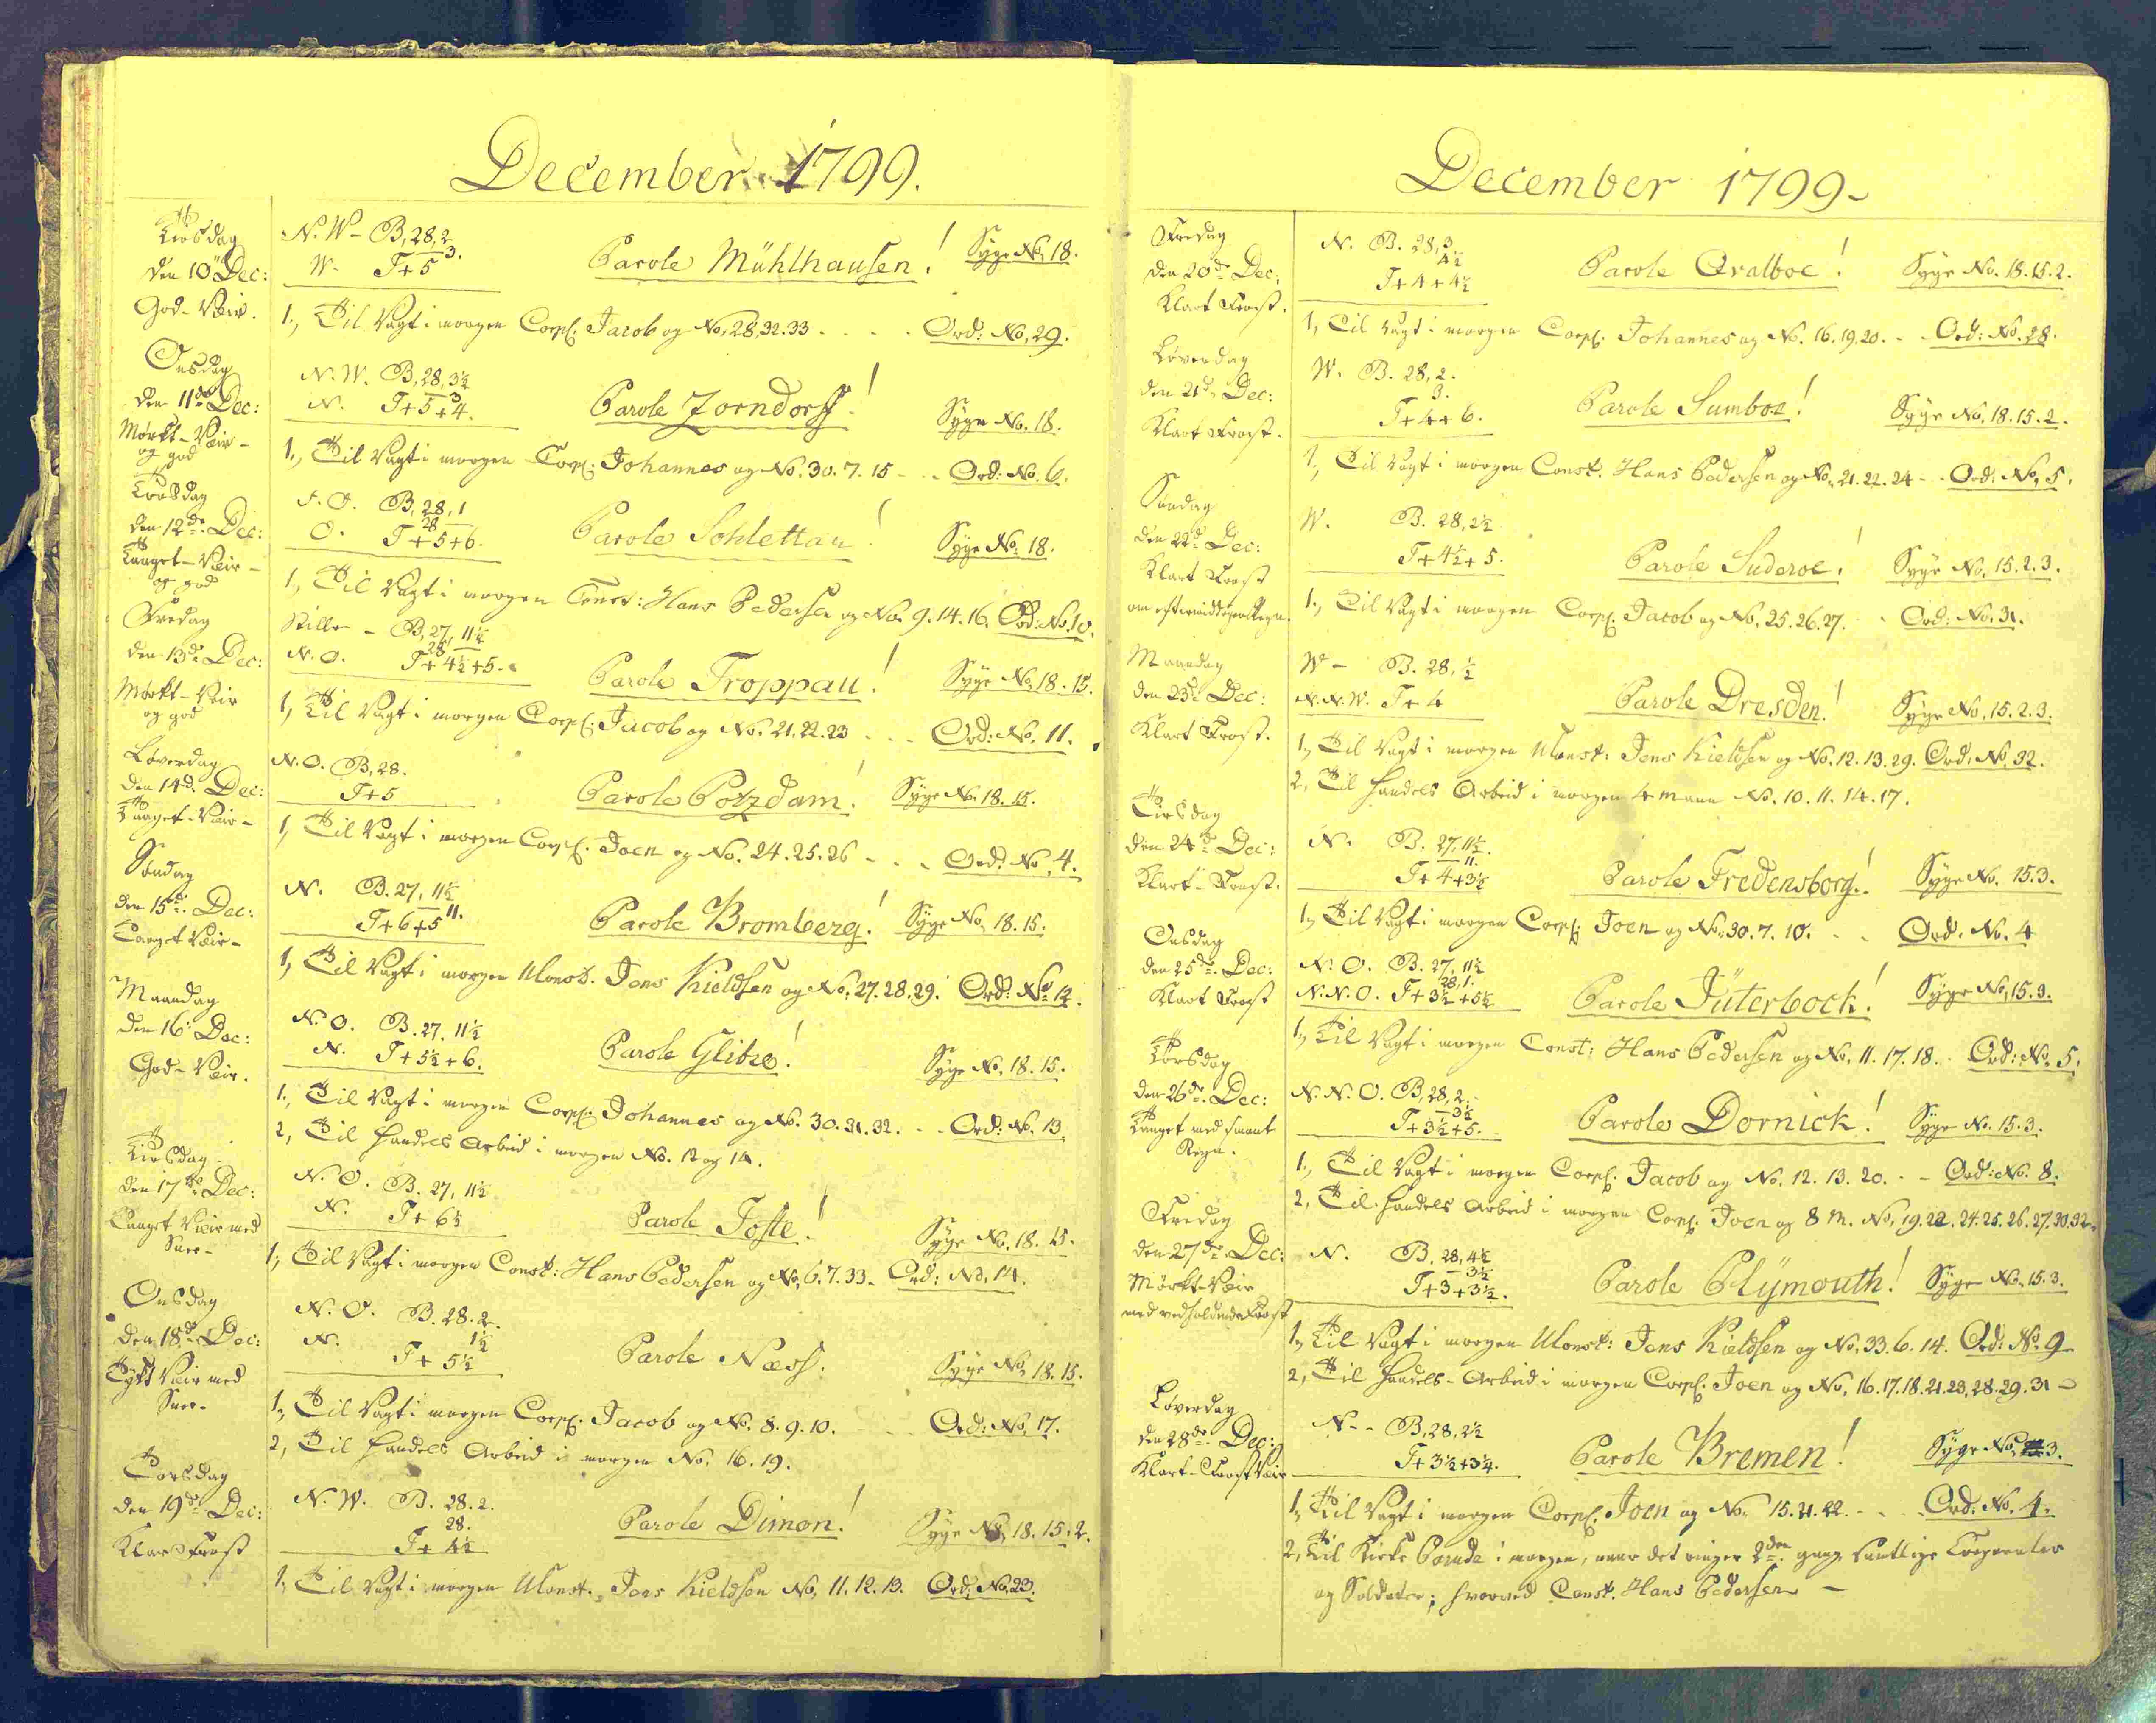 December 1799.
Tirsdag
den 10de Dec:
God-Veir.
N. W- B, 28, 2
3.
W- T+5
Parole Mühlhausen!
Syge No, 18.
1, Til Vagt i morgen Corpl: Jacob og No, 28, 32. 33 - - - Ord: No, 29.
Onsdag
den 11de Dec:
Mørkt-Veir-
og god
N. W. B, 28, 3½
3
N. T+5+4.
Parole Zorndorff!
Syge No. 18.
1, Til Vagt i morgen Corpl: Johannes og No, 30. 7. 15 - - Ord: No. 6.
Torsdag
den 12de Dec:
Taaget-Veir-
og god
S. O. B, 28, 1
28
O. T+5+6.
Parole Schlettau!
Syge No: 18.
1, Til Vagt i morgen Const: Hans Pedersen og No. 9. 14. 16. Ord: No. 10.
Fredag
den 13de Dec:
Mørkt-Veir
og god
Stille - B, 27, 11½
28
N. O. T+4½+5.
Parole Troppau!
Syge No, 18. 15.
1, Til Vagt i morgen Corpl: Jacob og No. 21. 22. 23 - - - Ord: No. 11.
Løverdag
den 14d. Dec:
Taaget-Veir-
N. O. B, 28.
T+5
Parole Potzdam!
Syge No. 18. 15.
1, Til Vagt i morgen Corpl. Joen og No. 24. 25. 26 - - - Ord: No, 4.
Søndag
den 15de Dec:
Taaget Veir-
N. B. 27, 11½
11.
T+6+5
Parole Bromberg!
Syge No, 18. 15.
1, Til Vagt i morgen UConst. Jens Kieldsen og No, 27. 28. 29. Ord: No 12.
Maandag
den 16: Dec:
God-Veir.
N. O. B. 27. 11½
N. T+5½+6.
Parole Glibre!
Syge No, 18. 15.
1, Til Vagt i morgen Corpl: Johannes og No. 30. 31. 32. - - Ord: No. 13.
2, Til Handels Arbeid i morgen No. 12 og 14.
Tirsdag
den 17de Dec:
Taaget Veir med
Snee-
N. O. B. 27, 11½
N. T+6½
Parole Tofte!
Syge No, 18. 15.
1, Til Vagt i morgen Const: Hans Pedersen og No, 6. 7. 33- Ord: No, 14.
Onsdag
den 18de Dec:
Tykt Veir med
Snee-
N. O. B. 28. 2.
1½
N. T+5½
Parole Næss!
Syge No, 18. 15.
1, Til Vagt i morgen Corpl: Jacob og No, 8. 9. 10. - - Ord: No, 17.
2, Til Handels Arbeid i morgen No. 16. 19.
Torsdag
den 19de Dec:
Klar Frost
N. W. B. 28. 2.
28.
T+4½
Parole Dimon!
Syge No, 18. 15. 2.
1, Til Vagt i morgen UConst. Jens Kieldsen No, 11. 12. 13. Ord: No, 23.
December 1799-
Fredag
den 20de Dec:
Klart Frost.
N. B. 28, 3
4½
T+4+4½
Parole Qvalboe!
Syge No. 18. 15. 2.
1, Til Vagt i morgen Corpl: Johannes og No. 16. 19. 20. - - Ord: No. 28.
Løverdag
den 21de Dec:
Klart Frost.
W. B. 28, 2.
3.
T+4+6.
Parole Sumboe!
Syge No, 18. 15. 2.
1, Til Vagt i morgen Const. Hans Pedersen og No, 21. 22. 24 - - Ord: No, 5.
Søndag
den 22de Dec:
Klart Frost
om eftermiddagen Regn.
W. B. 28, 2½
T+4½+5.
Parole Suderoe!
Syge No, 15. 2. 3.
1, Til Vagt i morgen Corpl: Jacob og No, 25. 26. 27. - Ord: No, 31.
Maandag
den 23de Dec:
Klart Frost.
W- B. 28, ½
N. N. W. T+4
Parole Dresden!
Syge No, 15. 2. 3.
1, Til Vagt i morgen UConst: Jens Kieldsen og No. 12. 13. 29. Ord: No, 32.
2, Til Handels Arbeid i morgen 4 Mann No. 10. 11. 14. 17.
Tirsdag
den 24de Dec:
Klart-Frost.
N. B. 27, 11½.
11.
T+4+3½
Parole Fredensborg!
Syge No. 15. 3.
1, Til Vagt i morgen Corpl: Joen og No, 30. 7. 10. - - Ord. No. 4
Onsdag
den 25de Dec:
Klart Frost
N. O. B. 27, 11½
28, 1.
N. N. O. T+3½+5½
Parole Jüterbock!
Syge No, 15. 3.
1, Til Vagt i morgen Const: Hans Pedersen og No, 11. 17. 18. - Ord: No. 5.
Torsdag
den 26de Dec:
Taaget med smaat
Regn.
N. N. O. B, 28, 2.
3½
T+3½+5.
Parole Dornick!
Syge No. 15. 3.
1, Til Vagt i morgen Corpl: Jacob og No. 12. 13. 20. - - Ord: No. 8.
2, Til Handels Arbeid i morgen Corpl. Joen og 8 M. No, 19. 22. 24. 25. 26. 27. 30. 32.
Fredag
den 27de Dec:
Mørkt-Veir
med vedholdende Frost
N. B. 28, 4½
3½
T+3+3½.
Parole Plÿmouth!
Syge No, 15. 3.
1, Til Vagt i morgen UConst: Jens Kieldsen og No, 33. 6. 14. Ord: No 9-
2, Til Handels-Arbeid i morgen Corpl: Joen og No, 16. 17. 18. 21. 23, 28. 29. 31-
Løverdag
den 28de Dec:
Klart-Frost Veir
N- - B, 28, 2½
T+3½+3¼.
Parole Bremen!
Syge No, 3.
1, Til Vagt i morgen Corpl. Joen og No. 15. 21. 22. - - - Ord: No. 4.
2, Til Kirke Parade i morgen, naar det ringer 2den gang samtlige Corporaler
og Soldater; hvorved Const. Hans Pedersen -